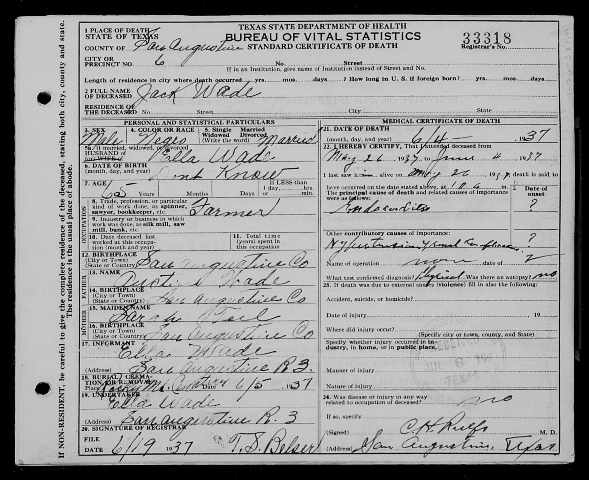 TEXAS STATE DEPARTMENT OF HEALTH
BUREAU OF VITAL STATISTICS
STANDARD CERTIFICATE OF DEATH
33318
Registrar's No.
1 PLACE OF DEATH
STATE OF TEXAS
COUNTY OF San Augustine
CITY OR PRECINCT NO. 6 No. Street
If in an Institution, give name of institution instead of Street and No.
Length of residence in city where death occurred yrs. mos. days ? How long in U. S. if foreign born? yrs. mos. days
2 FULL NAME OF DECEASED Jack Wade
RESIDENCE OF THE DECEASED No. Street City State
PERSONAL AND STATISTICAL PARTICULARS
3. SEX Male 4. COLOR OR RACE Negro 5. Single Married Widowed Divorced (Write the word) Married
5a. If married, widowed, or divorced
HUSBAND OF Ella Wade
6. DATE OF BIRTH (month, day, and year) Dont Know
7. AGE 62 Years Months Days If LESS than 1 day, hrs. min.
OCCUPATION
8. Trade, profession, or particular kind of work done, as spinner, sawyer, bookkeeper, etc. Farmer
9. Industry or business in which work was done, as silk mill, saw mill, bank, etc.
10. Date deceased last worked at this occupation (month and year)
11. Total time (years) spent in this occupation
12. BIRTHPLACE (City or Town) (State or Country) San Augustine Co
FATHER
13. NAME Wade
14. BIRTHPLACE (City or Town) (State or Country) San Augustine Co
MOTHER
15. MAIDEN NAME Sarah
16. BIRTHPLACE (City or Town) (State or Country) San Augustine Co
17. INFORMANT Ella Wade
(Address) San Augustine R 3
18. BURIAL, CREMATION, OR REMOVAL 6/5 1937
19. UNDERTAKER Ella Wade
(Address) San Augustine R. 3
20. SIGNATURE OF REGISTRAR
FILE DATE 6/19 1937 T. S. Belser
MEDICAL CERTIFICATE OF DEATH
21. DATE OF DEATH (month, day, and year) 6/4 1937
22. I HEREBY CERTIFY, That I attended deceased from
May 26 1937 to June 4 1937
I last saw him alive on May 26 1937 death is said to
have occurred on the date stated above, at 10 m.
The principal cause of death and related causes of importance were as follows:
Date of onset
Endocarditis ?
Other contributory causes of importance:
Hypertension ?
Name of operation none date of
What test confirmed diagnosis? Physical Was there an autopsy? no
23. If death was due to external causes (violence) fill in also the following:
Accident, suicide, or homicide?
Date of injury 19
Where did injury occur?
(Specify city or town, county, and State)
Specify whether injury occurred in industry, in home, or in public place.
Manner of injury
Nature of injury
24. Was disease or injury in any way related to occupation of deceased? no
If so, specify
(Signed) M. D.
(Address) San Augustine, Texas
IF NON-RESIDENT, be careful to give the complete residence of the deceased, stating both city, county and state.
The residence is the usual place of abode.